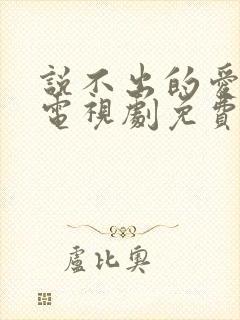 説不出的愛
電視劇免費
盧比奧